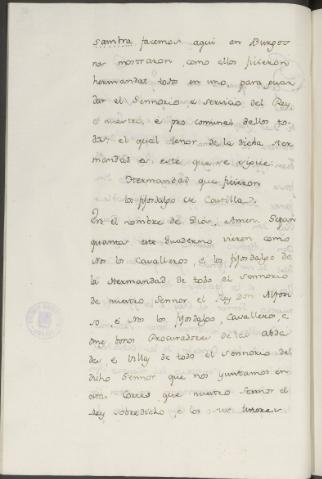 Sambra facemos aqui en Burgos
nos mostraron, como ellos ficieron
hermandat, todo en uno, para guar
dar el Sennorio e servicio del Rey,
e nuestro, e pro comunal dellos to
dos, el qual tenor de la dicha Her
mandad es este que se sigue:
Hermandad que ficieron
los fijosdalgo de Castilla.
En el nombre de Dios, Amen. Sepan
quantos este Quaderno vieren como
Nos los Cavalleros, e los fijosdalgo de
la Hermandad de todo el Sennorio
de nuestro Sennor el Rey don Alfon
so, e Nos los fijosdalgo, Cavalleros, e
omes bonos Procuradores de las
des, e Villas de todo el Sennorio del
dicho Sennor que nos yuntamos en
estas Cortes que nuestro Sennor el
Rey sobredicho, e los sus